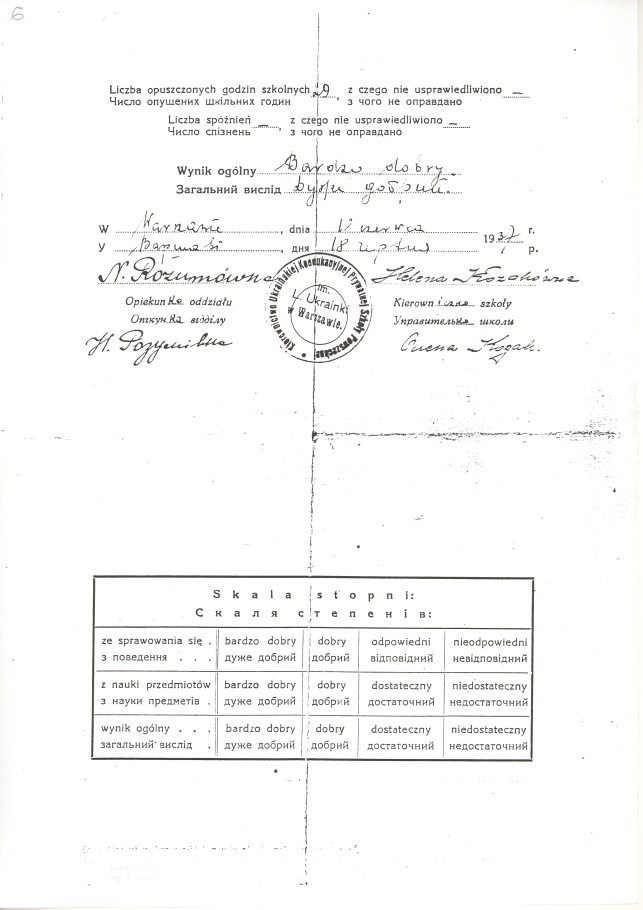 6
Liczba opuszczonych godzin szkolnych 29, z czego nie usprawiedliwiono —
Число опущених шкільних годин , з чого не оправдано
Liczba spóźnień —, z czego nie usprawiedliwiono —
Число спізнень , з чого не оправдано
Wynik ogólny Bardzo dobry.
Загальний вислід дуже добрий.
W Warszawie, dnia 18 czerwca 1937 r.
У Варшаві, дня 18 р.
N. Rozumówna Helena Kozakówna
Opiekunka oddziału Kierowniczka szkoły
Опікунка відділу Управителька школи
Н. Розумівна Олена Козак.
Kierownictwo Ukraińskiej Koedukacyjnej Prywatnej Szkoły Powszechnej
im.
Ł. Ukrainki
w Warszawie.
Skala stopni:
Скаля степенів:
ze sprawowania się . bardzo dobry dobry odpowiedni nieodpowiedni
з поведення . . . дуже добрий добрий відповідний невідповідний
z nauki przedmiotów bardzo dobry dobry dostateczny niedostateczny
з науки предметів . дуже добрий добрий достаточний недостаточний
wynik ogólny . . . bardzo dobry dobry dostateczny niedostateczny
загальний вислід . дуже добрий добрий достаточний недостаточний